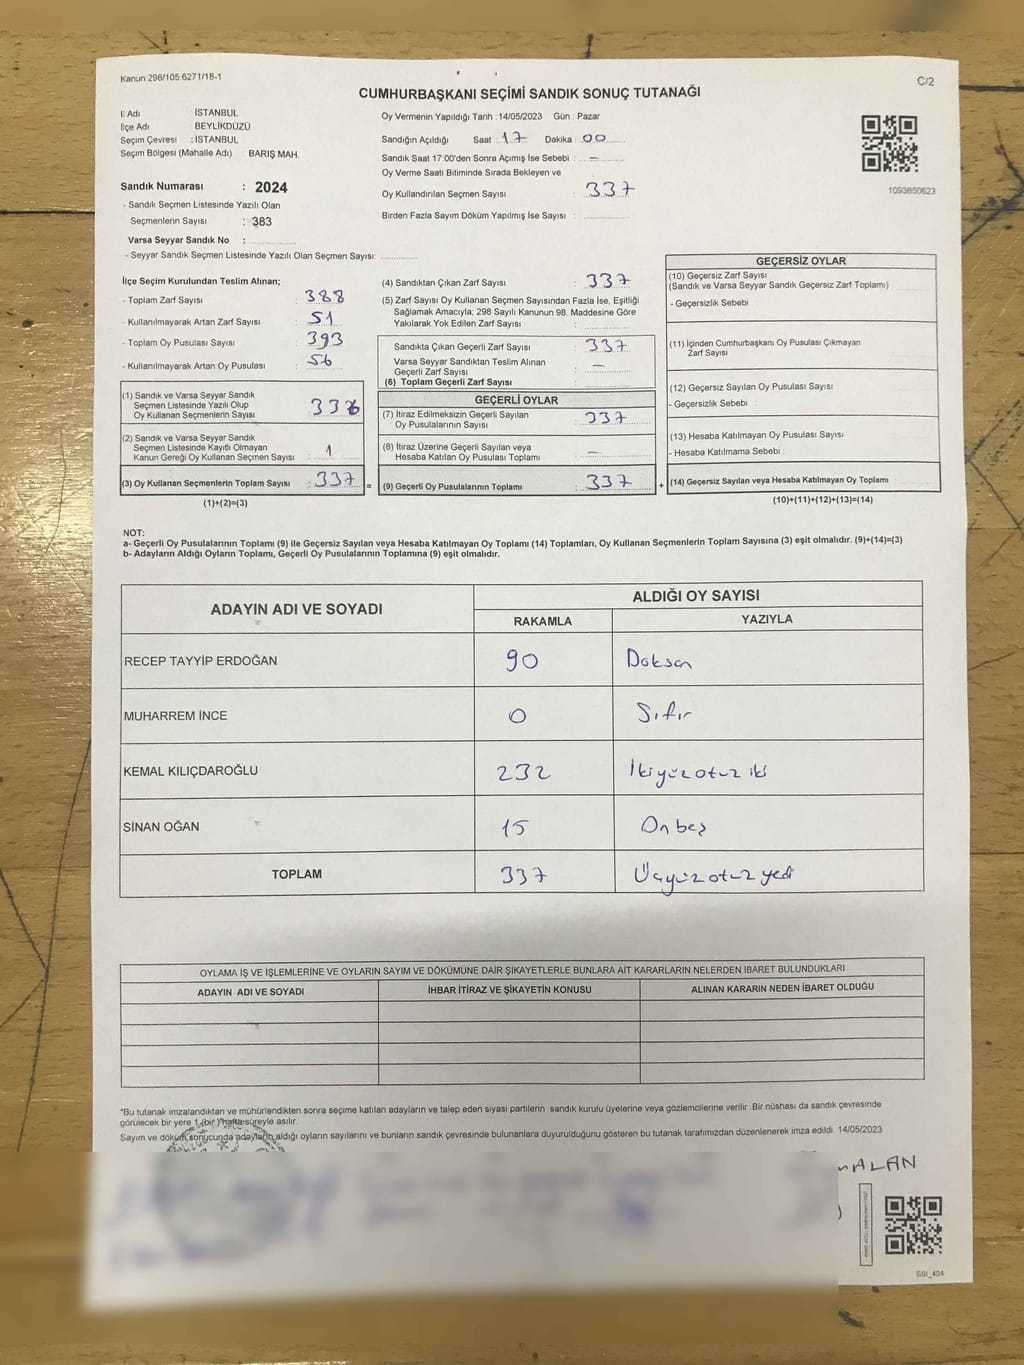 Kanun 298/105 6271/18-1
C/2
CUMHURBAŞKANI SEÇİMİ SANDIK SONUÇ TUTANAĞI
İl Adı İSTANBUL
İlçe Adı BEYLİKDÜZÜ
Seçim Çevresi : İSTANBUL
Seçim Bölgesi (Mahalle Adı) BARIŞ MAH.
Sandık Numarası : 2024
- Sandık Seçmen Listesinde Yazılı Olan
Seçmenlerin Sayısı : 383
Varsa Seyyar Sandık No :
- Seyyar Sandık Seçmen Listesinde Yazılı Olan Seçmen Sayısı:
Oy Vermenin Yapıldığı Tarih :14/05/2023 Gün : Pazar
Sandığın Açıldığı Saat : 17 Dakika : 00
Sandık Saat 17:00'den Sonra Açımış İse Sebebi : –
Oy Verme Saati Bitiminde Sırada Bekleyen ve
Oy Kullandırılan Seçmen Sayısı : 337
Birden Fazla Sayım Döküm Yapılmış İse Sayısı :
1093850623
İlçe Seçim Kurulundan Teslim Alınan;
- Toplam Zarf Sayısı : 388
- Kullanılmayarak Artan Zarf Sayısı : 51
- Toplam Oy Pusulası Sayısı : 393
- Kullanılmayarak Artan Oy Pusulası : 56
(1) Sandık ve Varsa Seyyar Sandık
Seçmen Listesinde Yazılı Olup
Oy Kullanan Seçmenlerin Sayısı : 336
(2) Sandık ve Varsa Seyyar Sandık
Seçmen Listesinde Kayıtlı Olmayan
Kanun Gereği Oy Kullanan Seçmen Sayısı : 1
(3) Oy Kullanan Seçmenlerin Toplam Sayısı : 337 =
(1)+(2)=(3)
(4) Sandıktan Çıkan Zarf Sayısı : 337
(5) Zarf Sayısı Oy Kullanan Seçmen Sayısından Fazla İse, Eşitliği
Sağlamak Amacıyla; 298 Sayılı Kanunun 98. Maddesine Göre
Yakılarak Yok Edilen Zarf Sayısı :
Sandıkta Çıkan Geçerli Zarf Sayısı : 337
Varsa Seyyar Sandıktan Teslim Alınan
Geçerli Zarf Sayısı : –
(6) Toplam Geçerli Zarf Sayısı :
GEÇERLİ OYLAR
(7) İtiraz Edilmeksizin Geçerli Sayılan
Oy Pusulalarının Sayısı : 337
(8) İtiraz Üzerine Geçerli Sayılan veya
Hesaba Katılan Oy Pusulası Toplamı : –
(9) Geçerli Oy Pusulalarının Toplamı : 337 +
GEÇERSİZ OYLAR
(10) Geçersiz Zarf Sayısı
(Sandık ve Varsa Seyyar Sandık Geçersiz Zarf Toplamı)
- Geçersizlik Sebebi :
(11) İçinden Cumhurbaşkanı Oy Pusulası Çıkmayan
Zarf Sayısı
(12) Geçersiz Sayılan Oy Pusulası Sayısı
- Geçersizlik Sebebi :
(13) Hesaba Katılmayan Oy Pusulası Sayısı
- Hesaba Katılmama Sebebi :
(14) Geçersiz Sayılan veya Hesaba Katılmayan Oy Toplamı
(10)+(11)+(12)+(13)=(14)
NOT:
a- Geçerli Oy Pusulalarının Toplamı (9) ile Geçersiz Sayılan veya Hesaba Katılmayan Oy Toplamı (14) Toplamları, Oy Kullanan Seçmenlerin Toplam Sayısına (3) eşit olmalıdır. (9)+(14)=(3)
b- Adayların Aldığı Oyların Toplamı, Geçerli Oy Pusulalarının Toplamına (9) eşit olmalıdır.
ADAYIN ADI VE SOYADI ALDIĞI OY SAYISI
RAKAMLA YAZIYLA
RECEP TAYYİP ERDOĞAN 90 Doksan
MUHARREM İNCE 0 Sıfır
KEMAL KILIÇDAROĞLU 232 İkiyüzotuz iki
SİNAN OĞAN 15 Onbeş
TOPLAM 337 Üçyüzotuz yedi
OYLAMA İŞ VE İŞLEMLERİNE VE OYLARIN SAYIM VE DÖKÜMÜNE DAİR ŞİKAYETLERLE BUNLARA AİT KARARLARIN NELERDEN İBARET BULUNDUKLARI
ADAYIN ADI VE SOYADI İHBAR İTİRAZ VE ŞİKAYETİN KONUSU ALINAN KARARIN NEDEN İBARET OLDUĞU
*Bu tutanak imzalandıktan ve mühürlendikten sonra seçime katılan adayların ve talep eden siyasi partilerin sandık kurulu üyelerine veya gözlemcilerine verilir. Bir nüshası da sandık çevresinde
görülecek bir yere 1 (bir) hafta süreyle asılır.
Sayım ve döküm sonucunda adayların aldığı oyların sayılarını ve bunların sandık çevresinde bulunanlara duyurulduğunu gösteren bu tutanak tarafımızdan düzenlenerek imza edildi. 14/05/2023
ALAN
SSI_404